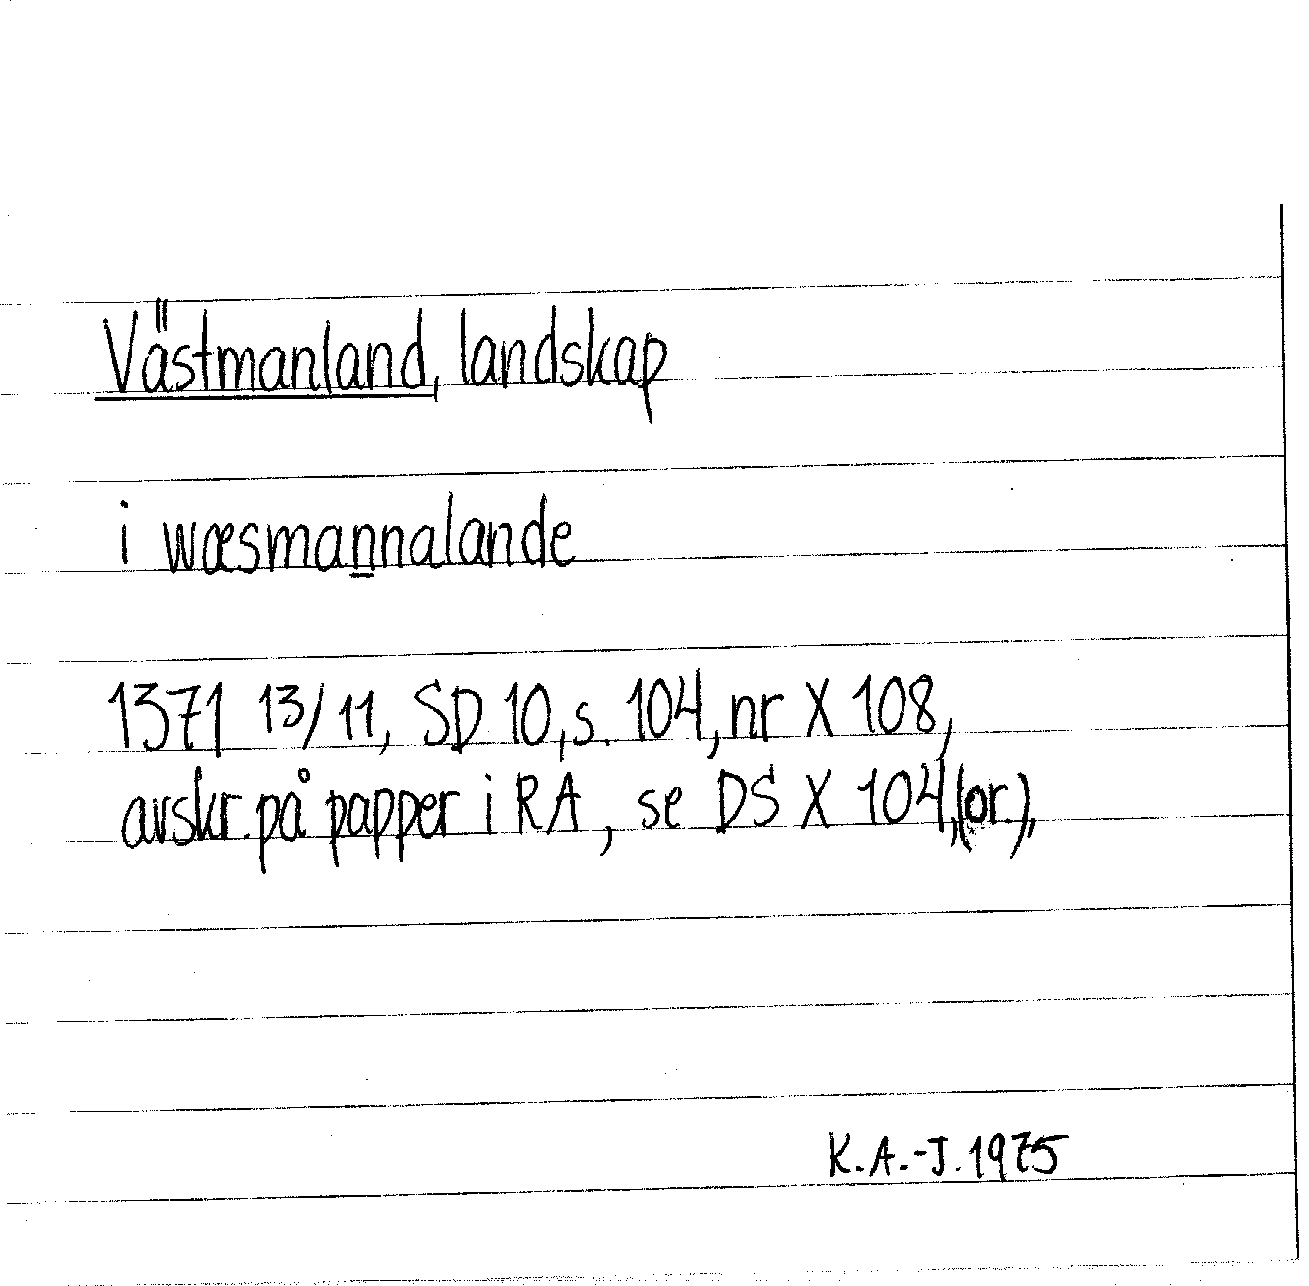 Västmanland, landskap
i wæsmannalande
1371 13/11, SD 10, s. 104, nr X 108,
avskr. på papper i RA, se DS X 104, (or.),
K.A.-J. 1975